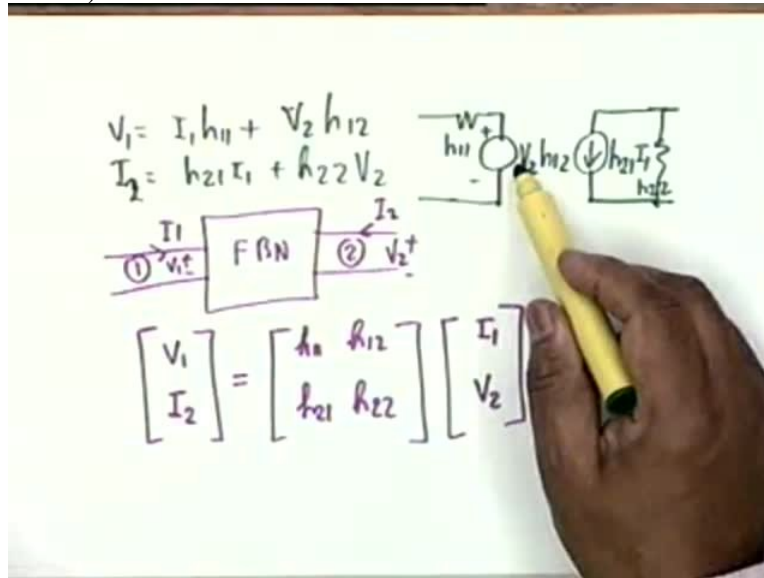 V₁ = I₁h₁₁ + V₂h₁₂
I₂ = h₂₁I₁ + h₂₂V₂
h₁₁ + - V₂h₁₂ h₂₁I₁ h₂₂
I₁ I₂
① V₁ + - FBN ② V₂ + -
[V₁ I₂] = [h₁₁ h₁₂ h₂₁ h₂₂] [I₁ V₂]